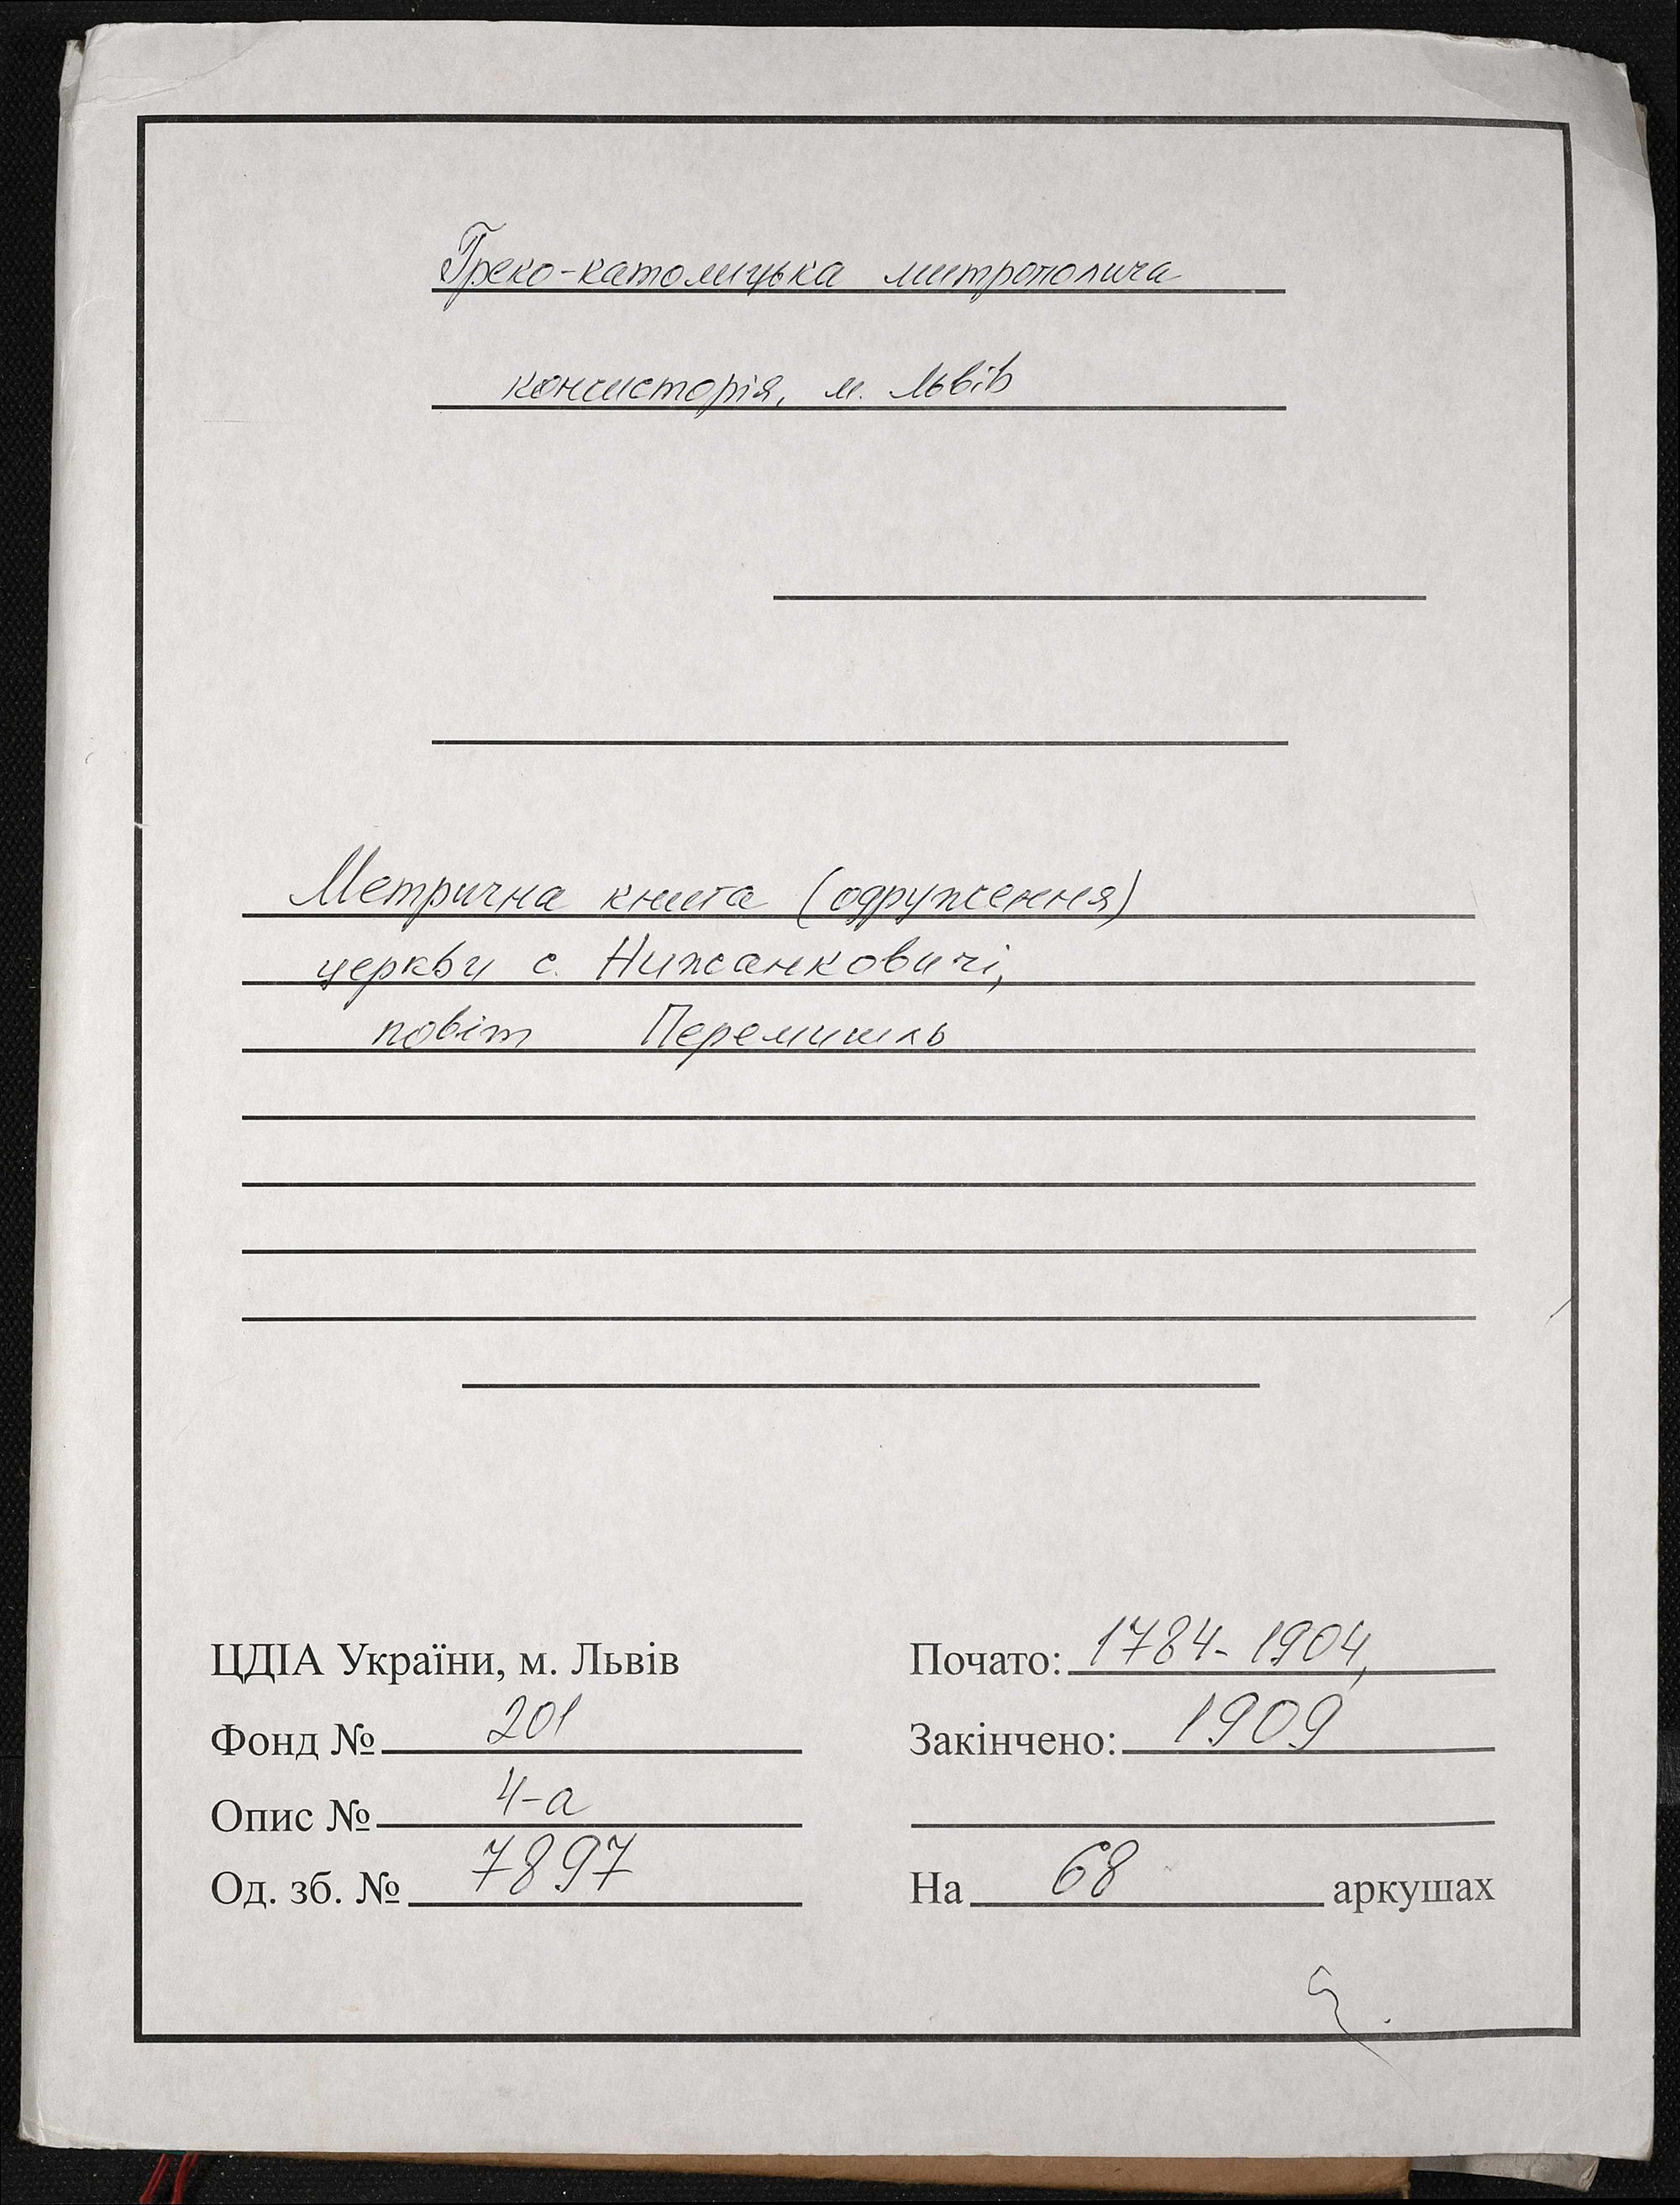 Греко-католицька митрополича
консисторія, м. Львів
Метрична книга (одруження)
церкви с. Нижанковичі,
повіт Перемишль
ЦДІА України, м. Львів
Фонд № 201
Опис № 4-а
Од. зб. № 7897
Почато: 1784-1904,
Закінчено: 1909
На 68 аркушах